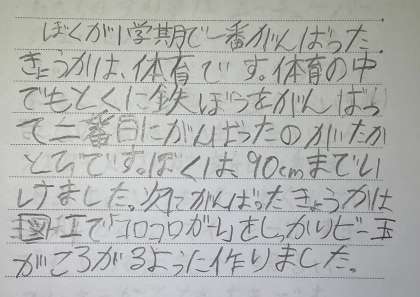 ぼくが1学期で一番がんばった
きょうかは、体育です。体育の中
でもとくに鉄ぼうをがんばっ
て二番目にがんばったのがたか
とびです。ぼくは90cmまでい
けました。次にがんばったきょうかは
図工で「コロコロガーレ」をしっかりビー玉
がころがるように作りました。